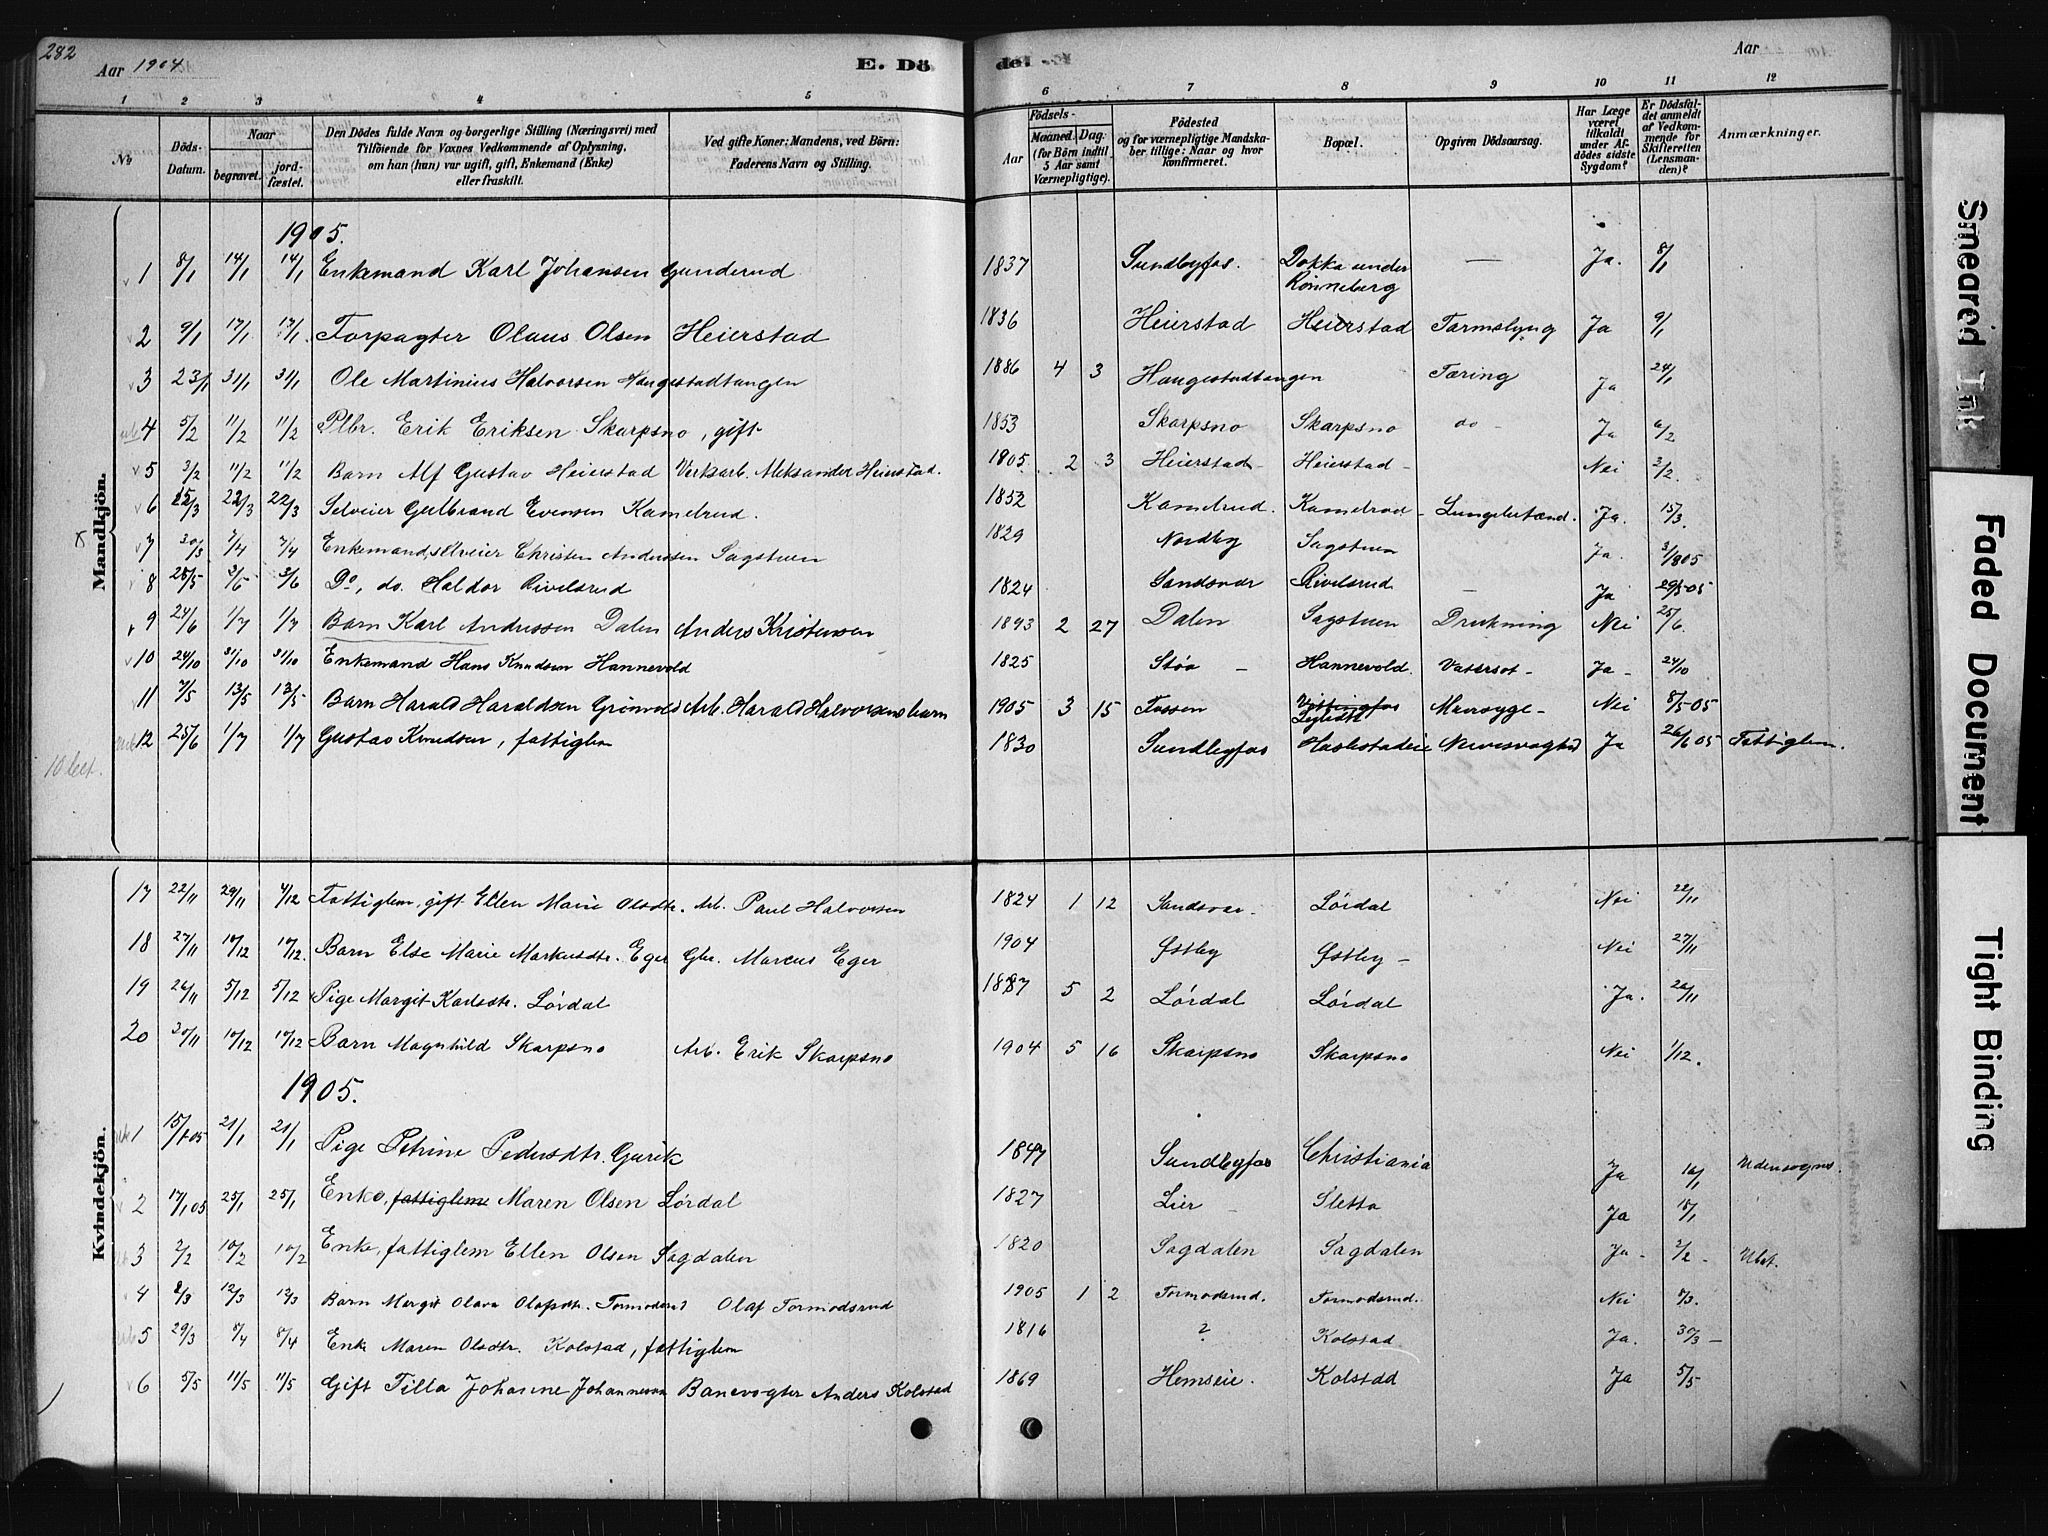 282
Aar 1904
E. Dö
de.
Aar
1 2 3 4 5 6 7 8 9 10 11 12
No
Döds-Datum.
Naar
begravet.
jord-fæstet.
Den Dödes fulde Navn og borgerlige Stilling (Næringsvei) med
Tilföiende for Voxnes Vedkommende af Oplysning,
om han (hun) var ugift, gift, Enkemand (Enke)
eller fraskilt.
Ved gifte Koner: Mandens, ved Börn:
Faderens Navn og Stilling.
Födsels-
Aar
Maaned.
Dag.
(for Börn indtil
5 Aar samt
Værnepligtige).
Födested
og for værnepligtige Mandska-
ber tillige: Naar og hvor
konfirmeret.
Bopæl.
Opgiven Dödsaarsag.
Har Læge
været
tilkaldt
under Af-
dödes sidste
Sygdom?
Er Dödsfal-
det anmeldt
af Vedkom-
mende for
Skifteretten
(Lensman-
den)?
Anmærkninger.
Mandkjön.
1905.
1 8/1 14/1 14/1 Enkemand Karl Johansen Gunderud 1837 Sundbyfos. Dokka under Rønneberg — Ja. 8/1
2 9/1 17/1 17/1 Forpagter Olaus Olsen Heierstad 1836 Heierstad Heierstad Tarmslyng Ja 9/1
3 23/1 31/1 31/1 Ole Martinius Halvorsen Haugestadtangen 1886 4 3 Haugestadtangen Tæring Ja 24/1
4 5/2 11/2 11/2 Plbr. Erik Eriksen Skarpsno, gift 1853 Skarpsno Skarpsno do - Ja 6/2
5 3/2 11/2 11/2 Barn Alf Gustav Heierstad Verksarb. Aleksander Heierstad. 1905 2 3 Heierstad - Heierstad - Nei 3/2
6 15/3 22/3 22/3 Selveier Gulbrand Evensen Kamelrud. 1852 Kamelrud. Kamelrud - Lungebetænd. Ja. 15/3.
7 30/3 7/4 7/4 Enkemand, selveier Christen Anderssen Sagstuen 1829 Nordby Sagstuen Ja.
8 28/5 3/6 3/6 Do, do. Haldor Rivelsrud 1824 Sandsvær Rivelsrud — Ja 29/5-05
9 24/6 1/7 1/7 Barn Karl Andressen Dalen Anders Kristensen 1893 2 27 Dalen Sagstuen Drukning Nei 25/6.
10 24/10 31/10 31/10 Enkemand Hans Knudsen Hannevold 1825 Støa - Hannevold. Vatersot - Ja - 24/10
11 7/5 13/5 13/5 Barn Harald Haraldsen Grönvold Arb. Harald Halvorsens barn 1905 3 15 Fossen Vittingfos Mavesyge - Nei 8/5-05
12 25/6 1/7 1/7 Gustav Knudsen, fattiglem 1830 Sundbyfos Haslestadeie Ja 26/6 05 Fattiglem.
Kvindekjön.
17 22/11 29/11 4/12 Fattiglem, gift Ellen Marie Olsdtr. Arb. Paul Halvorsen 1824 1 12 Sandsvær. Lørdal Nei 22/11
18 27/11 10/12 10/12. Barn Else Marie Markusdtr. Eger Gbr. Marcus Eger 1904 Østby Østby - Nei 27/11
19 26/11 5/12 5/12 Pige Margit Karlsdtr. Lørdal 1887 5 2 Lørdal Lørdal Ja. 26/11
20 30/11 10/12 10/12 Barn Magnhild Skarpsno Arb. Erik Skarpsno 1904 5 16 Skarpsno Skarpsno Nei 1/12.
1905.
1 15/1-05 21/1 21/1 Pige Petrine Pedersdtr. Gurik 1847 Sundbyfos Christiania Ja 16/1 Udensogns.
2 17/1 05 25/1 25/1 Enke, fattiglem Maren Olsen Lørdal 1827 Lier - Sletta Ja 18/1
3 2/2 10/2 10/2 Enke, fattiglem Ellen Olsen Sagdalen 1820 Sagdalen Sagdalen Ja - 2/2 - Ubet.
4 8/3 12/3 12/3 Barn Margit Olava Olafsdtr. Tormodsrud Olaf Tormodsrud 1905 1 2 Tormodsrud. Tormodsrud. Nei 8/3.
5 29/3 8/4 8/4 Enke Maren Olsdtr. Kolstad, fattiglem 1816 ? Kolstad Ja. 30/3 -
6 5/5 11/5 11/5 Gift Tilla Johanne Johannesen Banevogter Anders Kolstad 1869 Hemseie. Kolstad Ja 5/5
Smeared Ink
Faded Document
Tight Binding